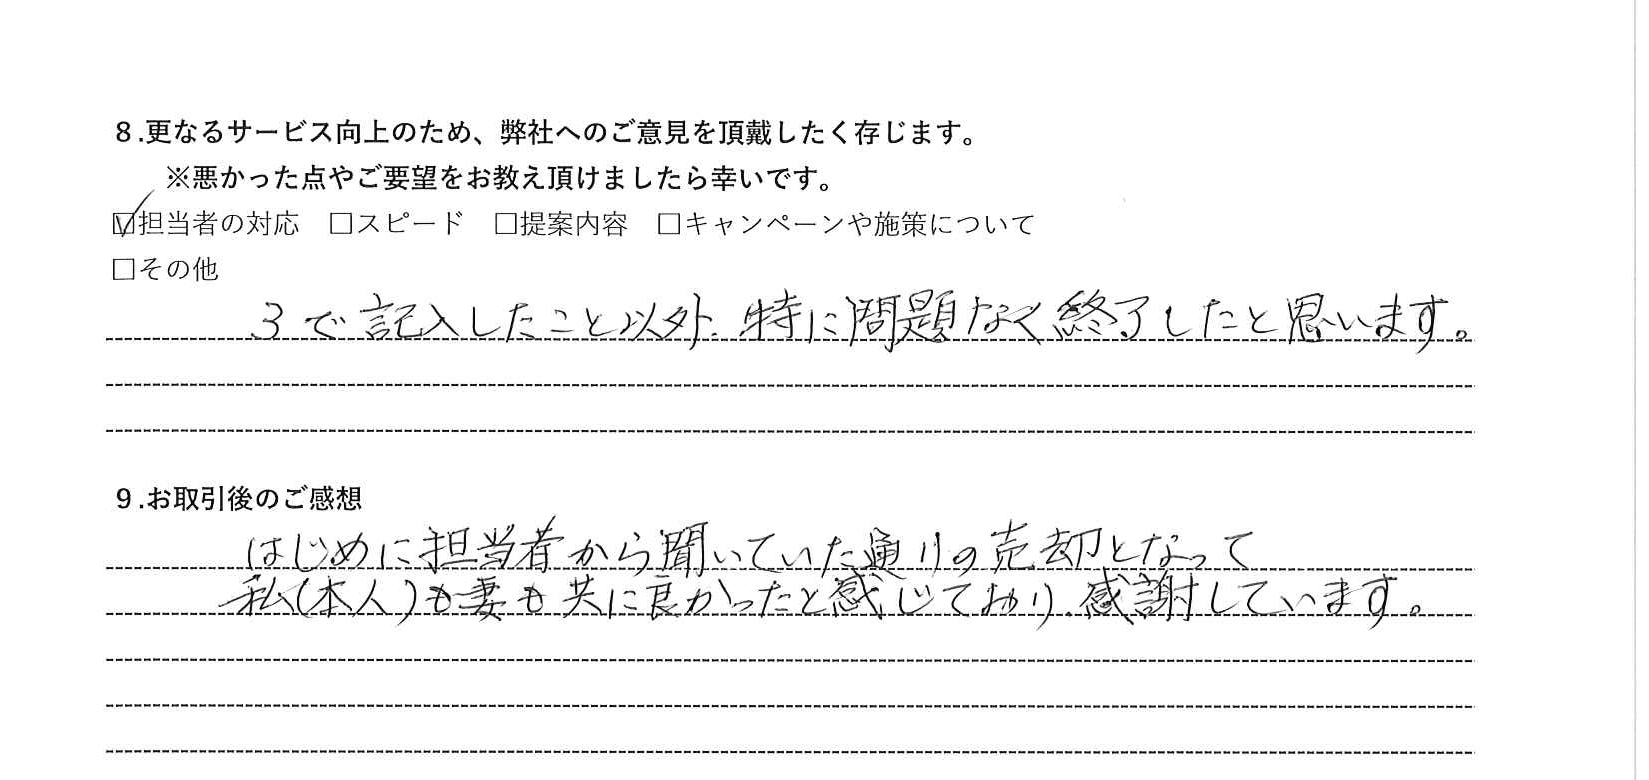 8.更なるサービス向上のため、弊社へのご意見を頂戴したく存じます。
※悪かった点やご要望をお教え頂けましたら幸いです。
☑担当者の対応　□スピード　□提案内容　□キャンペーンや施策について
□その他
3で記入したこと以外、特に問題なく終了したと思います。
9.お取引後のご感想
はじめに担当者から聞いていた通りの売却となって
私(本人)も妻も共に良かったと感じており、感謝しています。